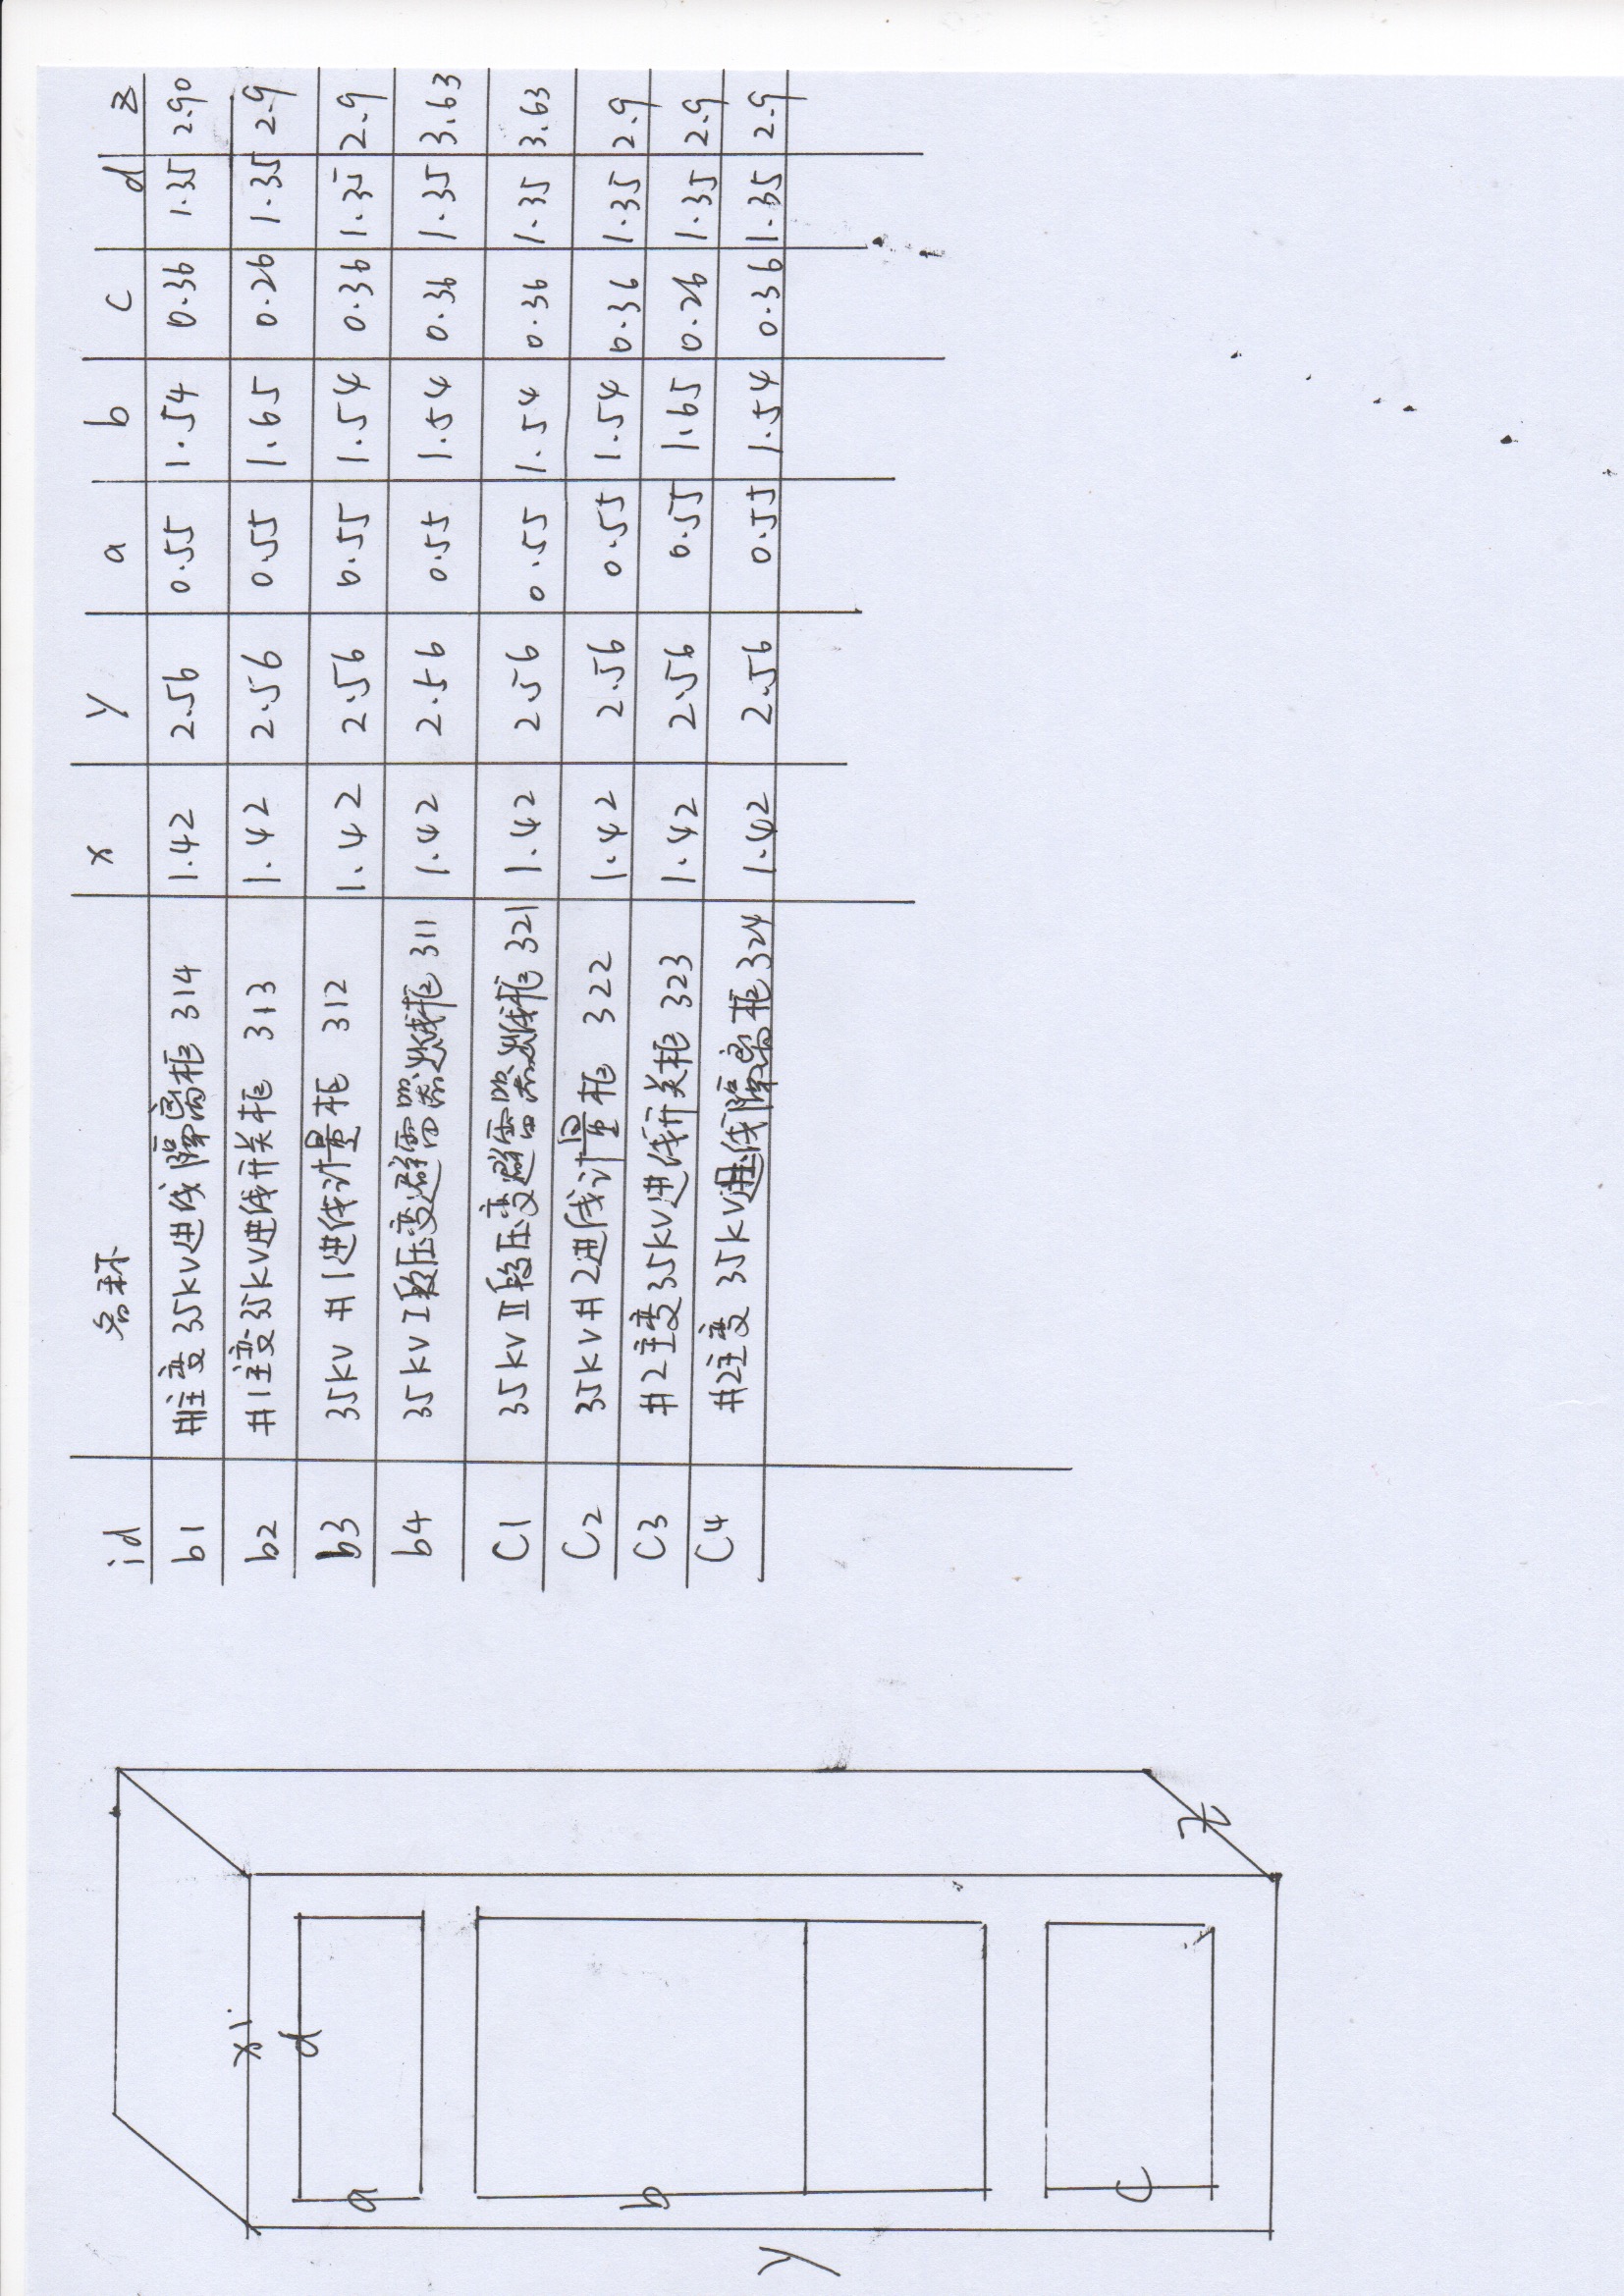 x1
d
a
b
y
c
z
id 名称 x y a b c d z
b1 #主变35kV进线隔离柜 314 1.42 2.56 0.55 1.54 0.36 1.35 2.90
b2 #1主变35kV进线开关柜 313 1.42 2.56 0.55 1.65 0.26 1.35 2.9
b3 35kV #1进线计量柜 312 1.42 2.56 0.55 1.54 0.36 1.35 2.9
b4 35kV I段压变避雷器出线柜 311 1.42 2.56 0.55 1.54 0.36 1.35 3.63
C1 35kV II段压变避雷器出线柜 321 1.42 2.56 0.55 1.54 0.36 1.35 3.63
C2 35kV #2进线计量柜 322 1.42 2.56 0.55 1.54 0.36 1.35 2.9
C3 #2主变35kV进线开关柜 323 1.42 2.56 0.55 1.65 0.26 1.35 2.9
C4 #2主变 35kV进线隔离柜 324 1.42 2.56 0.55 1.54 0.36 1.35 2.9